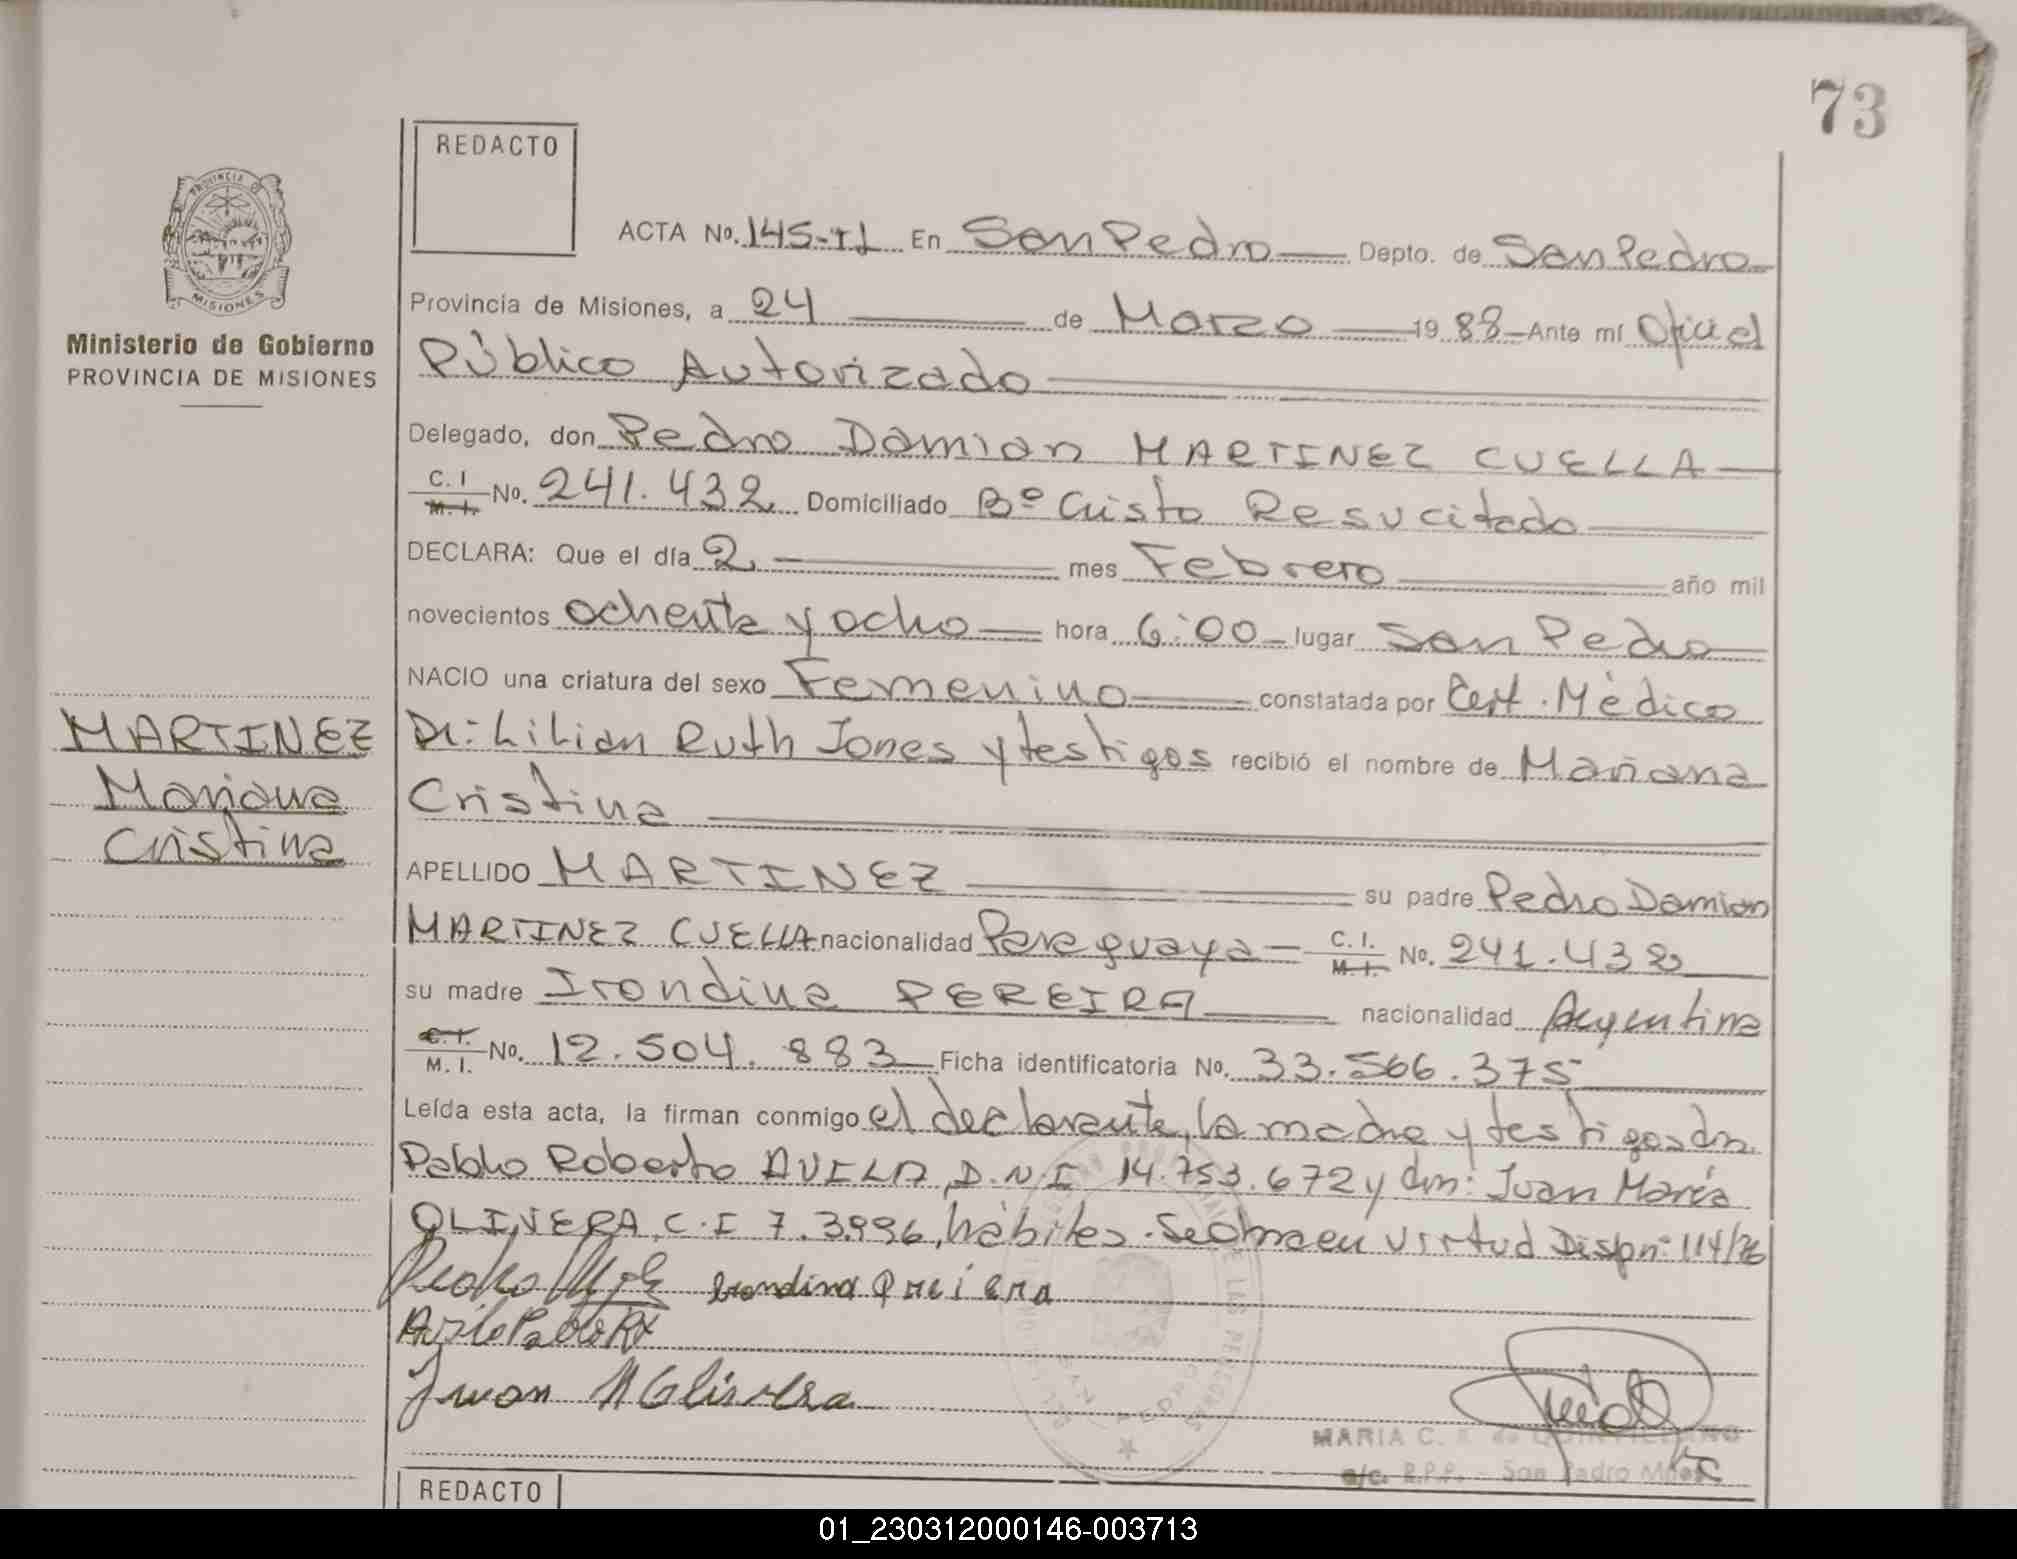 73
REDACTO
PROVINCIA DE
MISIONES
Ministerio de Gobierno
PROVINCIA DE MISIONES
ACTA No. 145-TI En San Pedro Depto. de San Pedro
Provincia de Misiones, a 24 de Marzo 1988 Ante mí Oficial
Público Autorizado
Delegado, don Pedro Damian MARTINEZ CUELLA
C. I M. I. No. 241.432 Domiciliado Bº Cristo Resucitado
DECLARA: Que el día 2 mes Febrero año mil
novecientos ochenta y ocho hora 6:00 lugar San Pedro
NACIO una criatura del sexo Femenino constatada por Cert. Médico
Dr: Lilian Ruth Jones y testigos recibió el nombre de Mariana
Cristina
MARTINEZ
Mariana
Cristina
APELLIDO MARTINEZ su padre Pedro Damian
MARTINEZ CUELLA nacionalidad Paraguaya C. I. M. I. No. 241.432
su madre Irondina PEREIRA nacionalidad Argentina
C. I. M. I. No. 12.504.883 Ficha identificatoria No. 33.566.375
Leída esta acta, la firman conmigo el declarante, la madre y testigos dn.
Pablo Roberto AVILA, D.N.I 14.753.672 y dn: Juan María
OLIVERA, C.I 7.3996, hábiles. Se labra en virtud Dispn: 114/76
Pedro
Irondina Pereira
Avila Pablo R
Juan M Olivera
MARIA C. de
a/c. R.P.P. - San Pedro Mnes
REDACTO
01_230312000146-003713